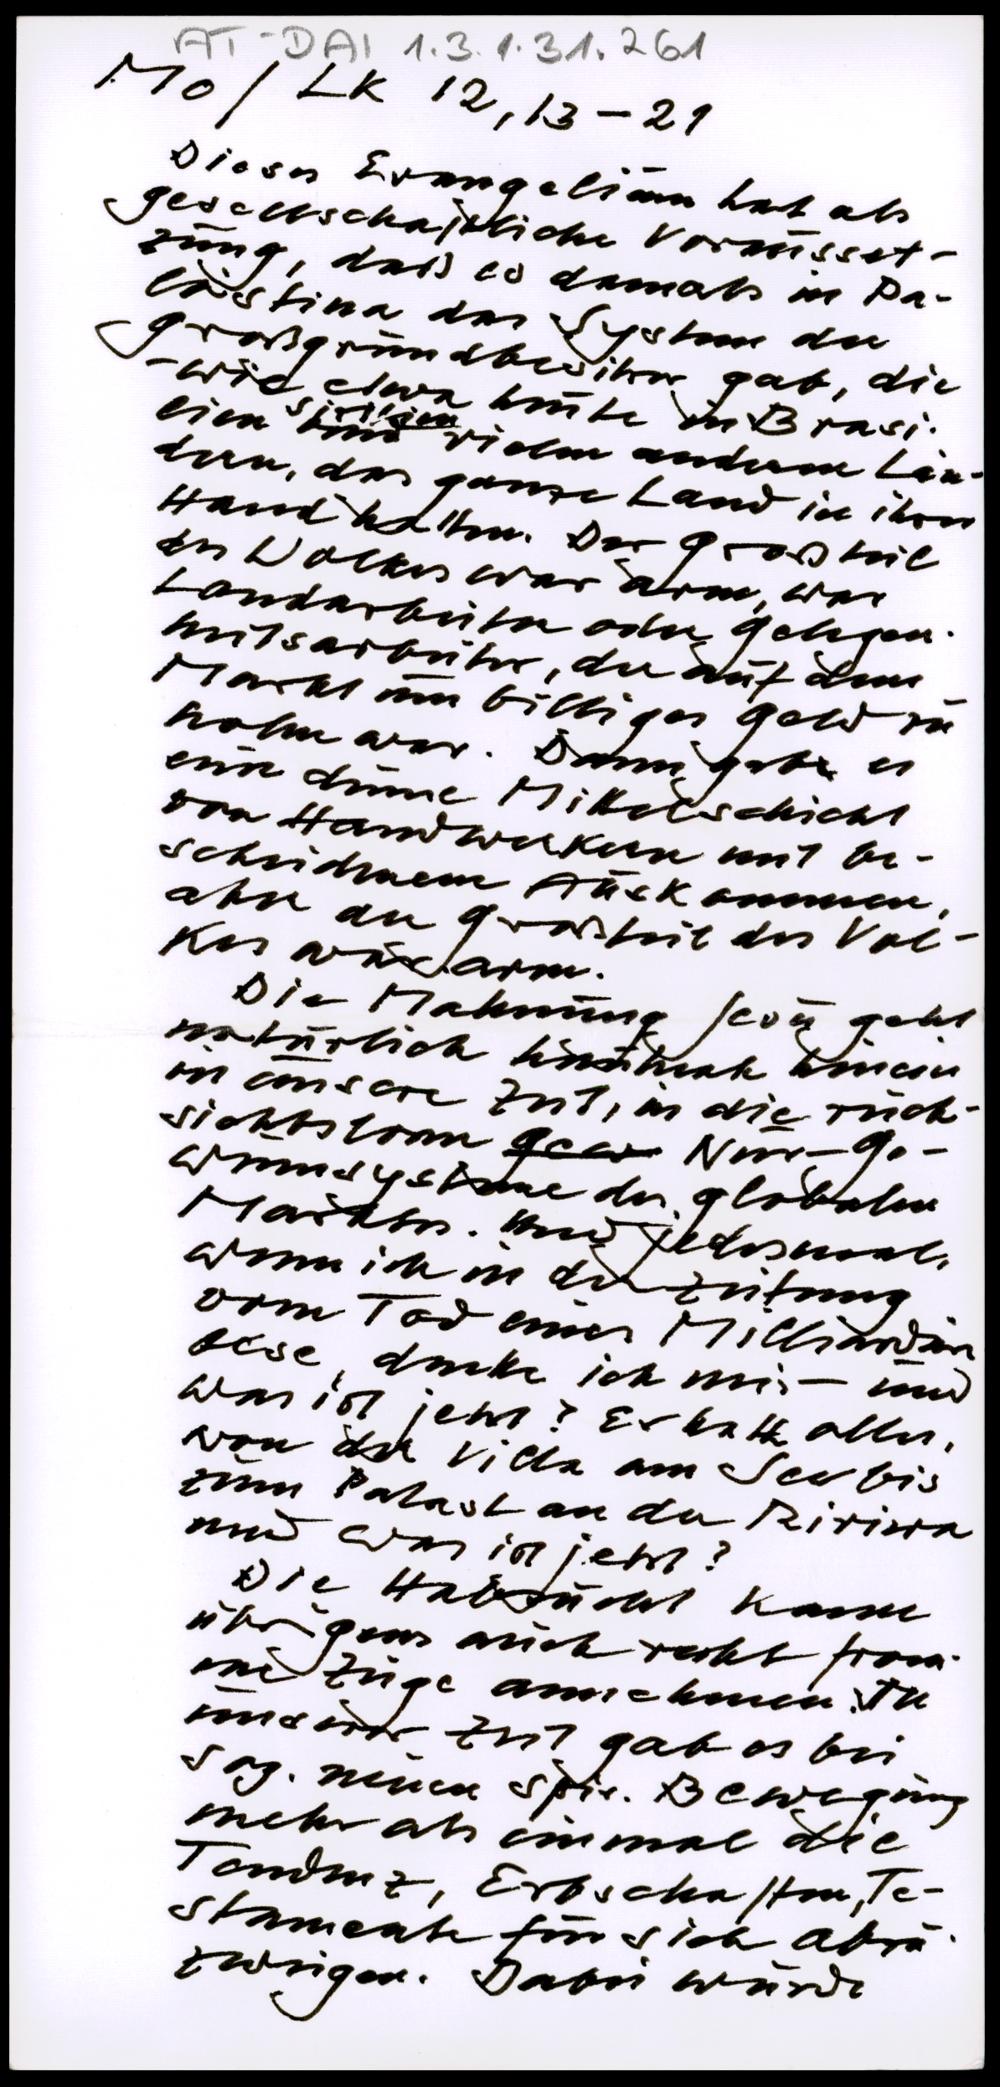 AT-DAI 1.3.1.31.261
Mo / LK 12,13-21
Dieses Evangelium hat als
gesellschaftliche Vorausset-
zung, daß es damals in Pa-
lästina das System der
Großgrundbesitzer gab, die
- wie etwa heute in Brasi-
lien Sizilien und vielen anderen Län-
dern, das ganze Land in ihrer
Hand hatten. Der Großteil
des Volkes war arm, war
Landarbeiter oder Gelegen-
heitsarbeiter, der auf dem
Markt um billiges Geld zu
holen war. Dann gab es
eine dünne Mittelschicht
von Handwerkern mit be-
scheidenem Auskommen,
aber der Großteil des Vol-
kes war arm.
Die Mahnung Jesu geht
natürlich hinein
in unsere Zeit, in die rück-
sichtslosen Nur-Ge-
winnsysteme des globalen
Marktes. Und jedesmal,
wenn ich in der Zeitung
vom Tod eines Milliardärs
lese, denke ich mir - und
was ist jetzt? Er hatte alles,
von der Villa am See bis
zum Palast an der Riviera
und was ist jetzt?
Die Habsucht kann
übrigens auch recht from-
me Züge annehmen. In
unserer Zeit gab es bei
sog. neuen spir. Bewegung
mehr als einmal die
Tendenz, Erbschaften, Te-
stamente für sich abzu-
zweigen. Dabei wurde